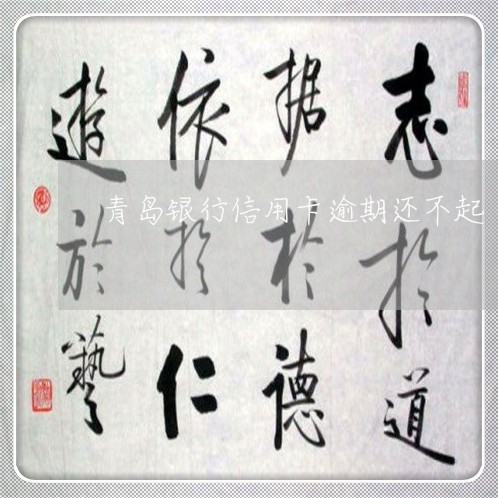 志於道
据於德
依於仁
遊於藝
青岛银行信用卡逾期还不起